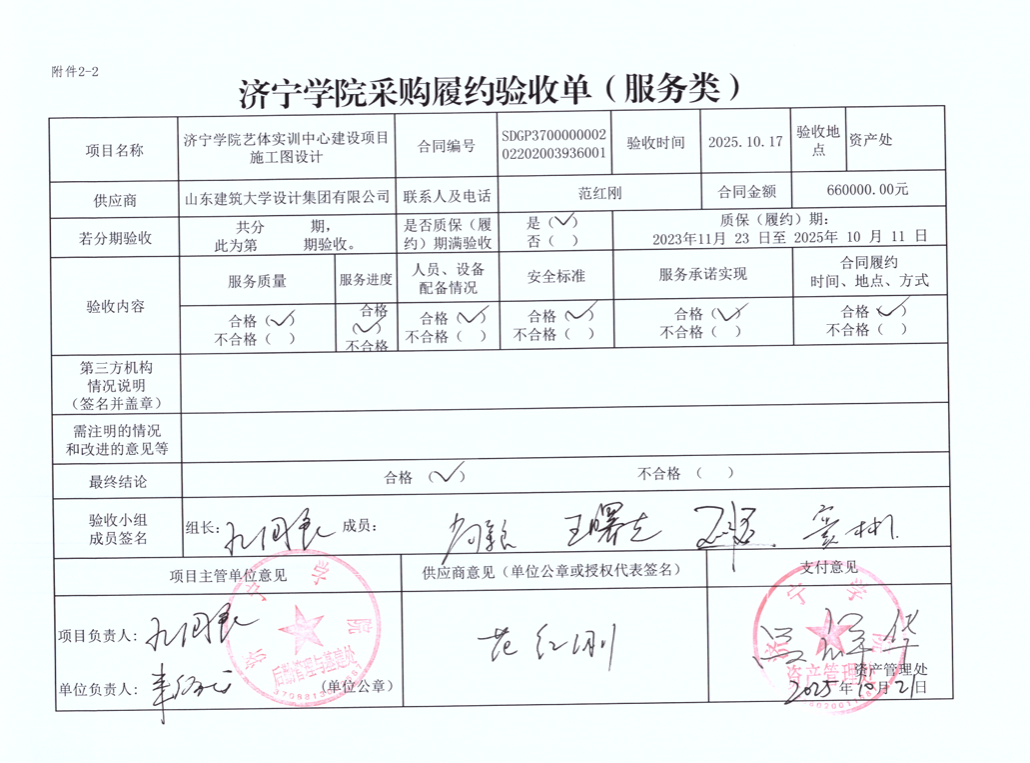 附件2-2
济宁学院采购履约验收单（服务类）
项目名称
济宁学院艺体实训中心建设项目
施工图设计
合同编号
SDGP3700000002
02202003936001
验收时间
2025.10.17
验收地
点
资产处
供应商
山东建筑大学设计集团有限公司
联系人及电话
范红刚
合同金额
660000.00元
若分期验收
共分 期，
此为第 期验收。
是否质保（履
约）期满验收
是（✓）
否（ ）
质保（履约）期：
2023年11月 23 日至 2025年 10 月 11 日
验收内容
服务质量
服务进度
人员、设备
配备情况
安全标准
服务承诺实现
合同履约
时间、地点、方式
合格（✓）
不合格（ ）
合格
（✓）
不合格
合格（✓）
不合格（ ）
合格（✓）
不合格（ ）
合格（✓）
不合格（ ）
合格（✓）
不合格（ ）
第三方机构
情况说明
（签名并盖章）
需注明的情况
和改进的意见等
最终结论
合格 （✓）
不合格 （ ）
验收小组
成员签名
组长：
成员：
项目主管单位意见
供应商意见（单位公章或授权代表签名）
支付意见
项目负责人：
单位负责人：
（单位公章）
范红刚
济宁学院
资产管理处
资产管理处
2025年10月21日